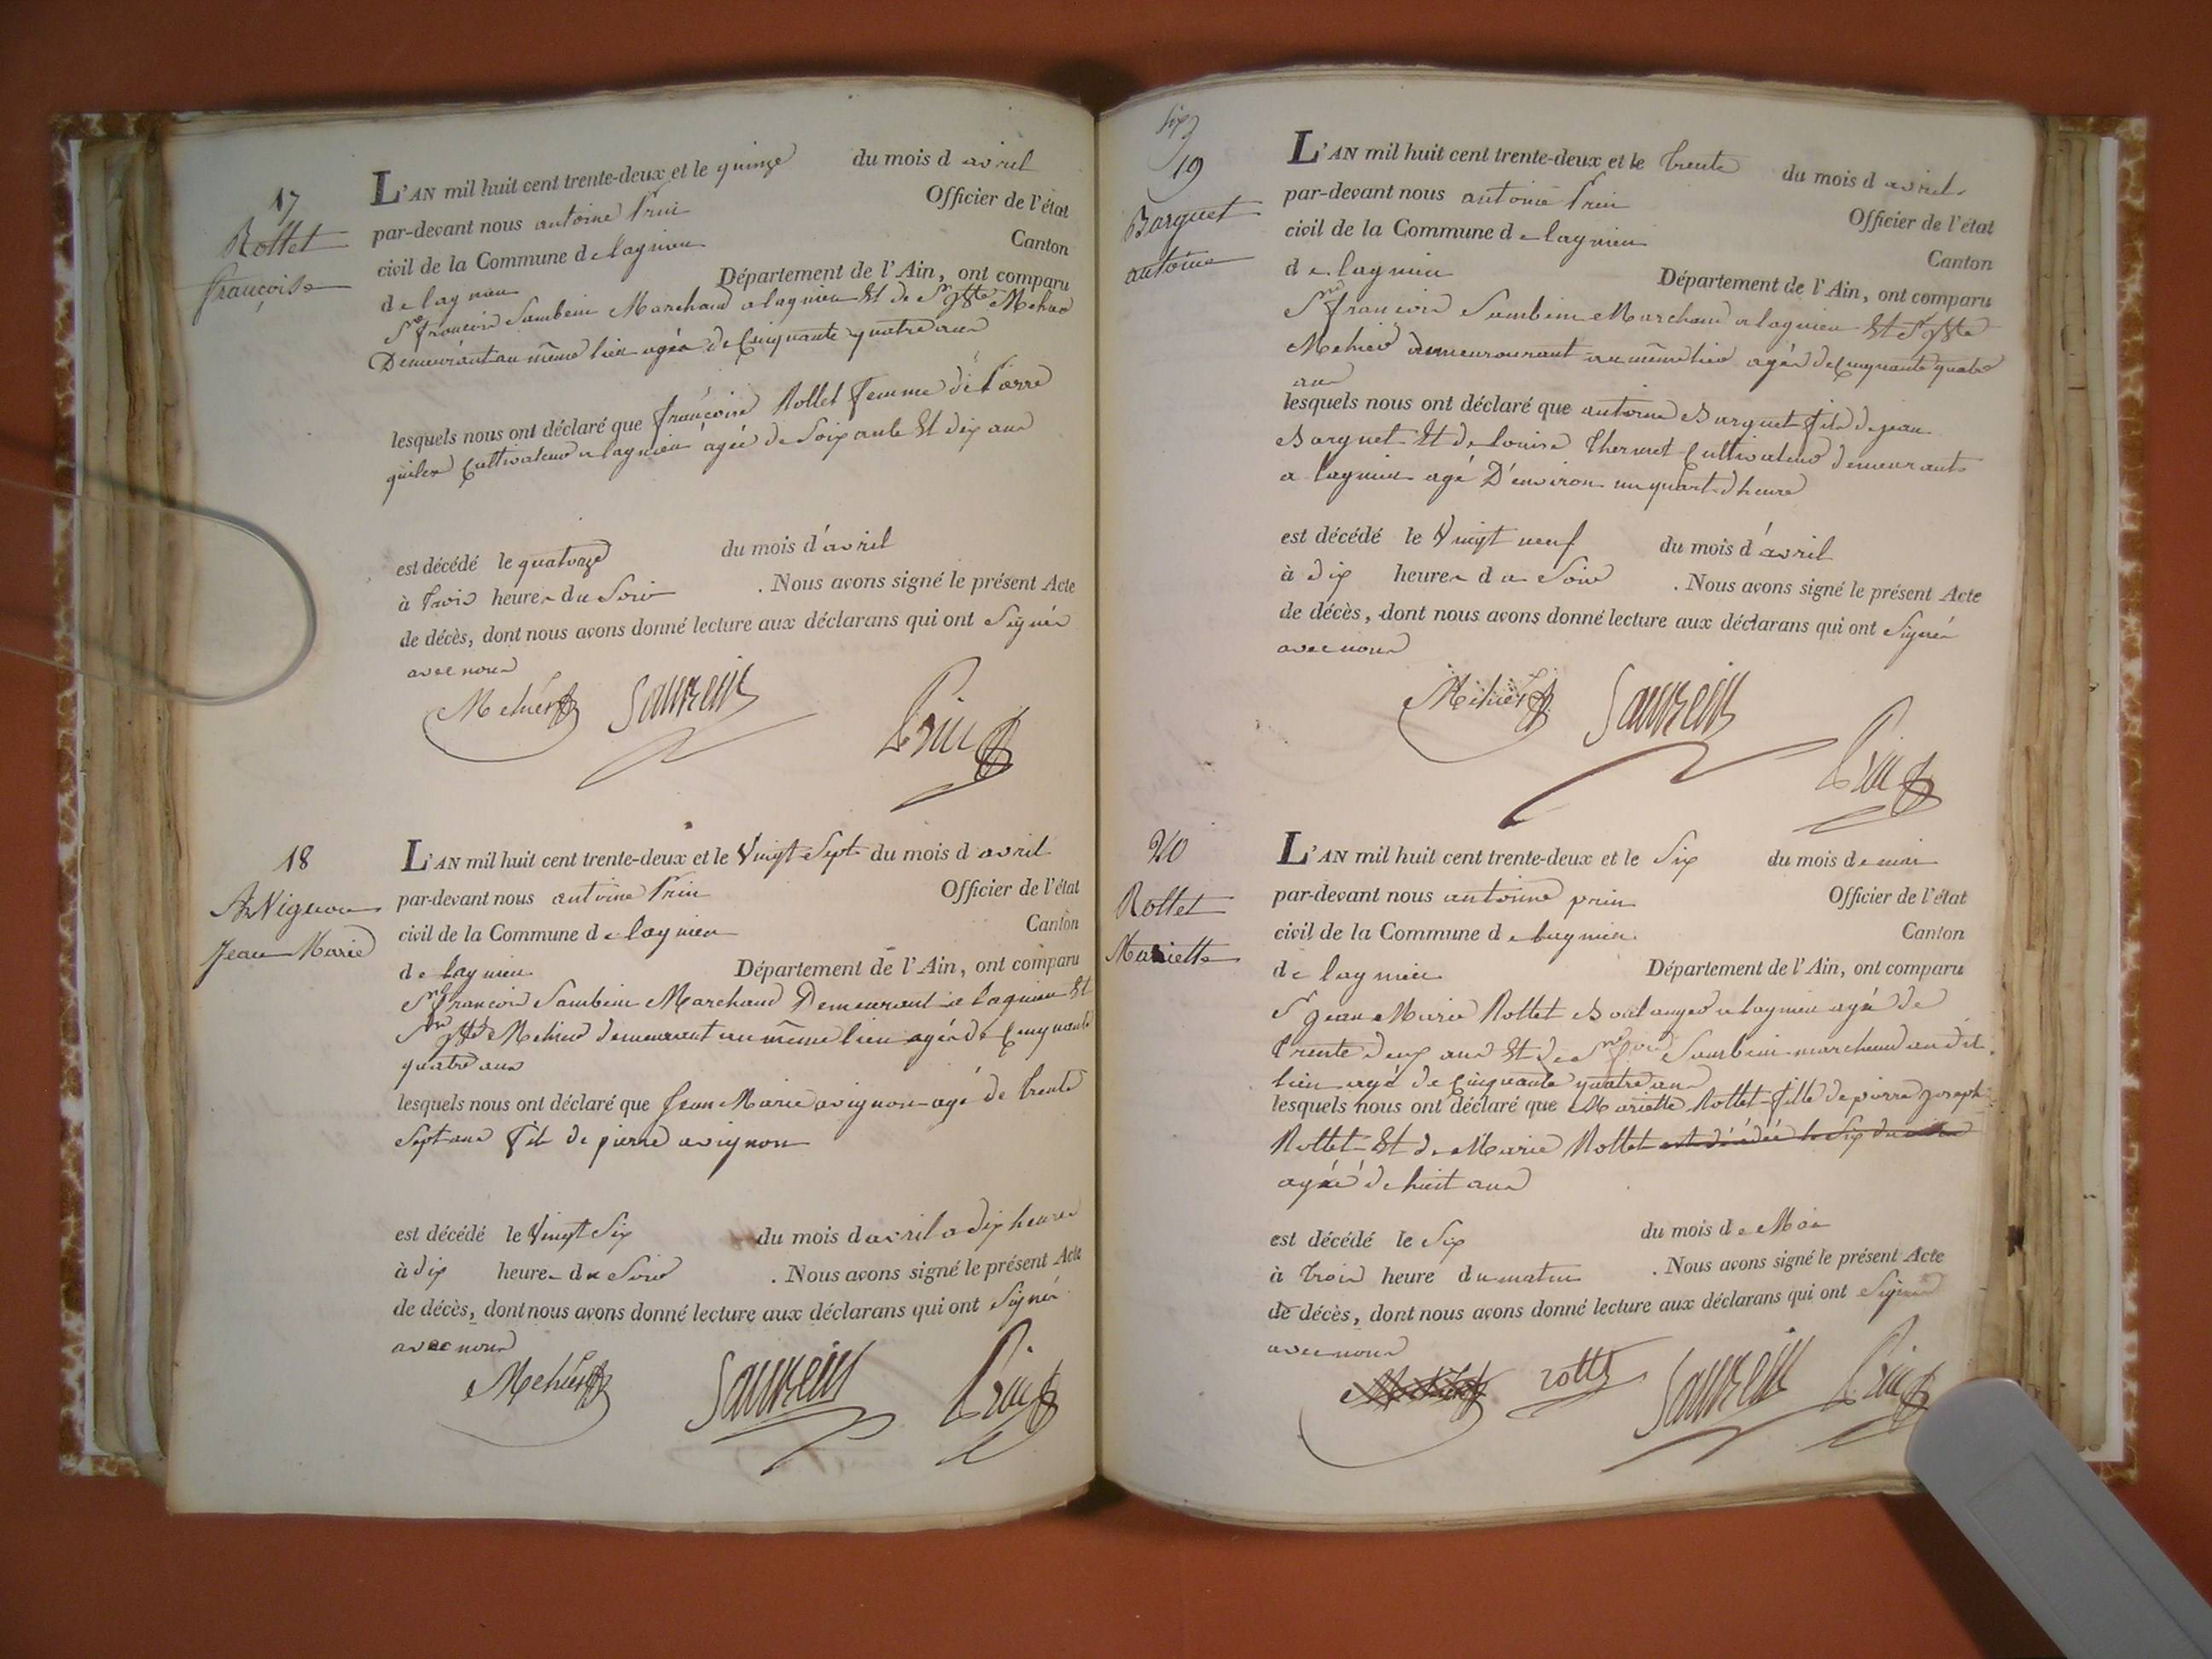 17
Rollet
françoise
L'AN mil huit cent trente-deux et le quinze du mois d avril
par-devant nous antoine Prin Officier de l'état
civil de la Commune de lagnieu Canton
de lagnieu Département de l'Ain, ont comparu
Sr françois Sambein Marchand a lagnieu Et de Sr Mehier
Demeurant au même lieu agés de Cinquante quatre ans
lesquels nous ont déclaré que françoise Rollet femme de Pierre
Cultivateur a lagnieu agée de Soixante Et dix ans
est décédé le quatorze du mois d'avril
à trois heures du Soir . Nous avons signé le présent Acte
de décès, dont nous avons donné lecture aux déclarans qui ont Signés
avec nous
Mehier Prin
18
AvVignon
Jean Marie
L'AN mil huit cent trente-deux et le Vingt Sept du mois d avril
par-devant nous antoine Prin Officier de l'état
civil de la Commune de lagnieu Canton
de lagnieu Département de l'Ain, ont comparu
Sr françois Sambein Marchand Demeurant a lagnieu Et
Mehier demeurant au même lieu agés de Cinquante
quatre ans
lesquels nous ont déclaré que Jean Marie avignon agé de trente
Sept ans fils de pierre avignon
est décédé le Vingt Six du mois d avril a dix heures
à dix heures du Soir . Nous avons signé le présent Acte
de décès, dont nous avons donné lecture aux déclarans qui ont Signés
avec nous
Mehier Prin
Six
19
Barquet
antoine
L'AN mil huit cent trente-deux et le trente du mois d avril
par-devant nous antoine Prin Officier de l'état
civil de la Commune de lagnieu Canton
de lagnieu Département de l'Ain, ont comparu
Sr françois Sambein Marchand a lagnieu Et Sr
Mehier demeurourant au même lieu agés de Cinquante quatre
ans
lesquels nous ont déclaré que antoine Barquet fils de jean
Barquet Et de louise Thermet Cultivateur demeurants
a lagnieu agé D'environ un quart d heure
est décédé le Vingt neuf du mois d'avril
à dix heures du Soir . Nous avons signé le présent Acte
de décès, dont nous avons donné lecture aux déclarans qui ont Signés
avec nous
Mehier Prin
20
Rollet
Mariette
L'AN mil huit cent trente-deux et le Six du mois de mai
par-devant nous antoine prin Officier de l'état
civil de la Commune de lagnieu Canton
de lagnieu Département de l'Ain, ont comparu
Sr jean Marie Rollet Boulanger a lagnieu agé de
trente deux ans Et de Sr fois Sambein marchand au dit
lieu agé de Cinquante quatre ans
lesquels nous ont déclaré que Mariette Rollet fille de pierre joseph
Rollet Et de Marie Rollet est décédée le Six du
agée de huit ans
est décédé le Six du mois de Mai
à trois heure du matin . Nous avons signé le présent Acte
de décès, dont nous avons donné lecture aux déclarans qui ont Signés
avec nous
Prin